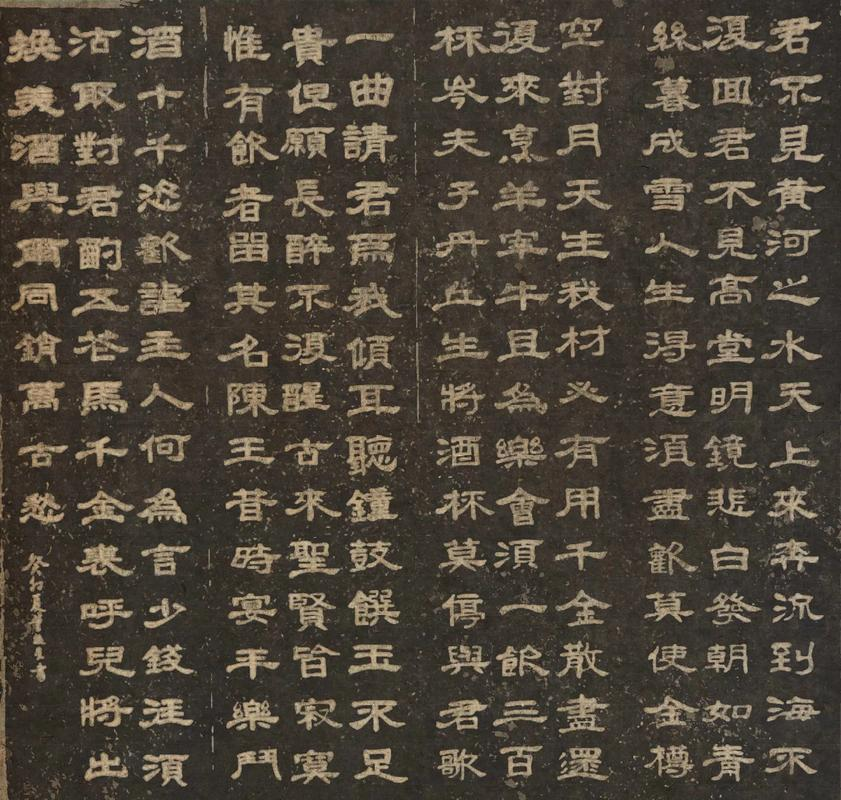 君不見黃河之水天上來奔流到海不
復回君不見高堂明鏡悲白發朝如青
絲暮成雪人生得意須盡歡莫使金樽
空對月天生我材必有用千金散盡還
復來烹羊宰牛且為樂會須一飲三百
杯岑夫子丹丘生將酒杯莫停與君歌
一曲請君為我傾耳聽鐘鼓饌玉不足
貴但願長醉不復醒古來聖賢皆寂寞
惟有飲者留其名陳王昔時宴平樂鬥
酒十千恣歡謔主人何為言少錢逕須
沽取對君酌五花馬千金裘呼兒將出
換美酒與爾同銷萬古愁
癸卯夏